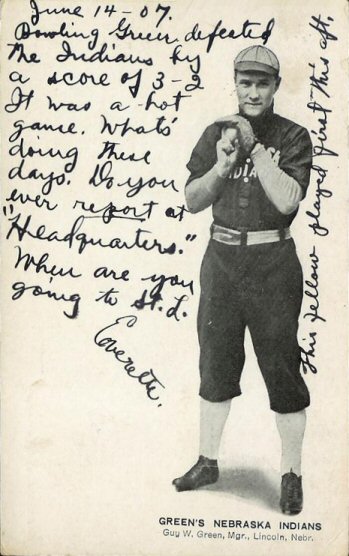 June 14-07.
Bowling Green defeated
the Indians by
a score of 3-2
It was a hot
game. Whats'
doing these
days. Do you
ever report at
"Headquarters."
When are you
going to St. L.
Everette.
This fellow played first this aft.
INDIA
GREEN'S NEBRASKA INDIANS
Guy W. Green, Mgr., Lincoln, Nebr.